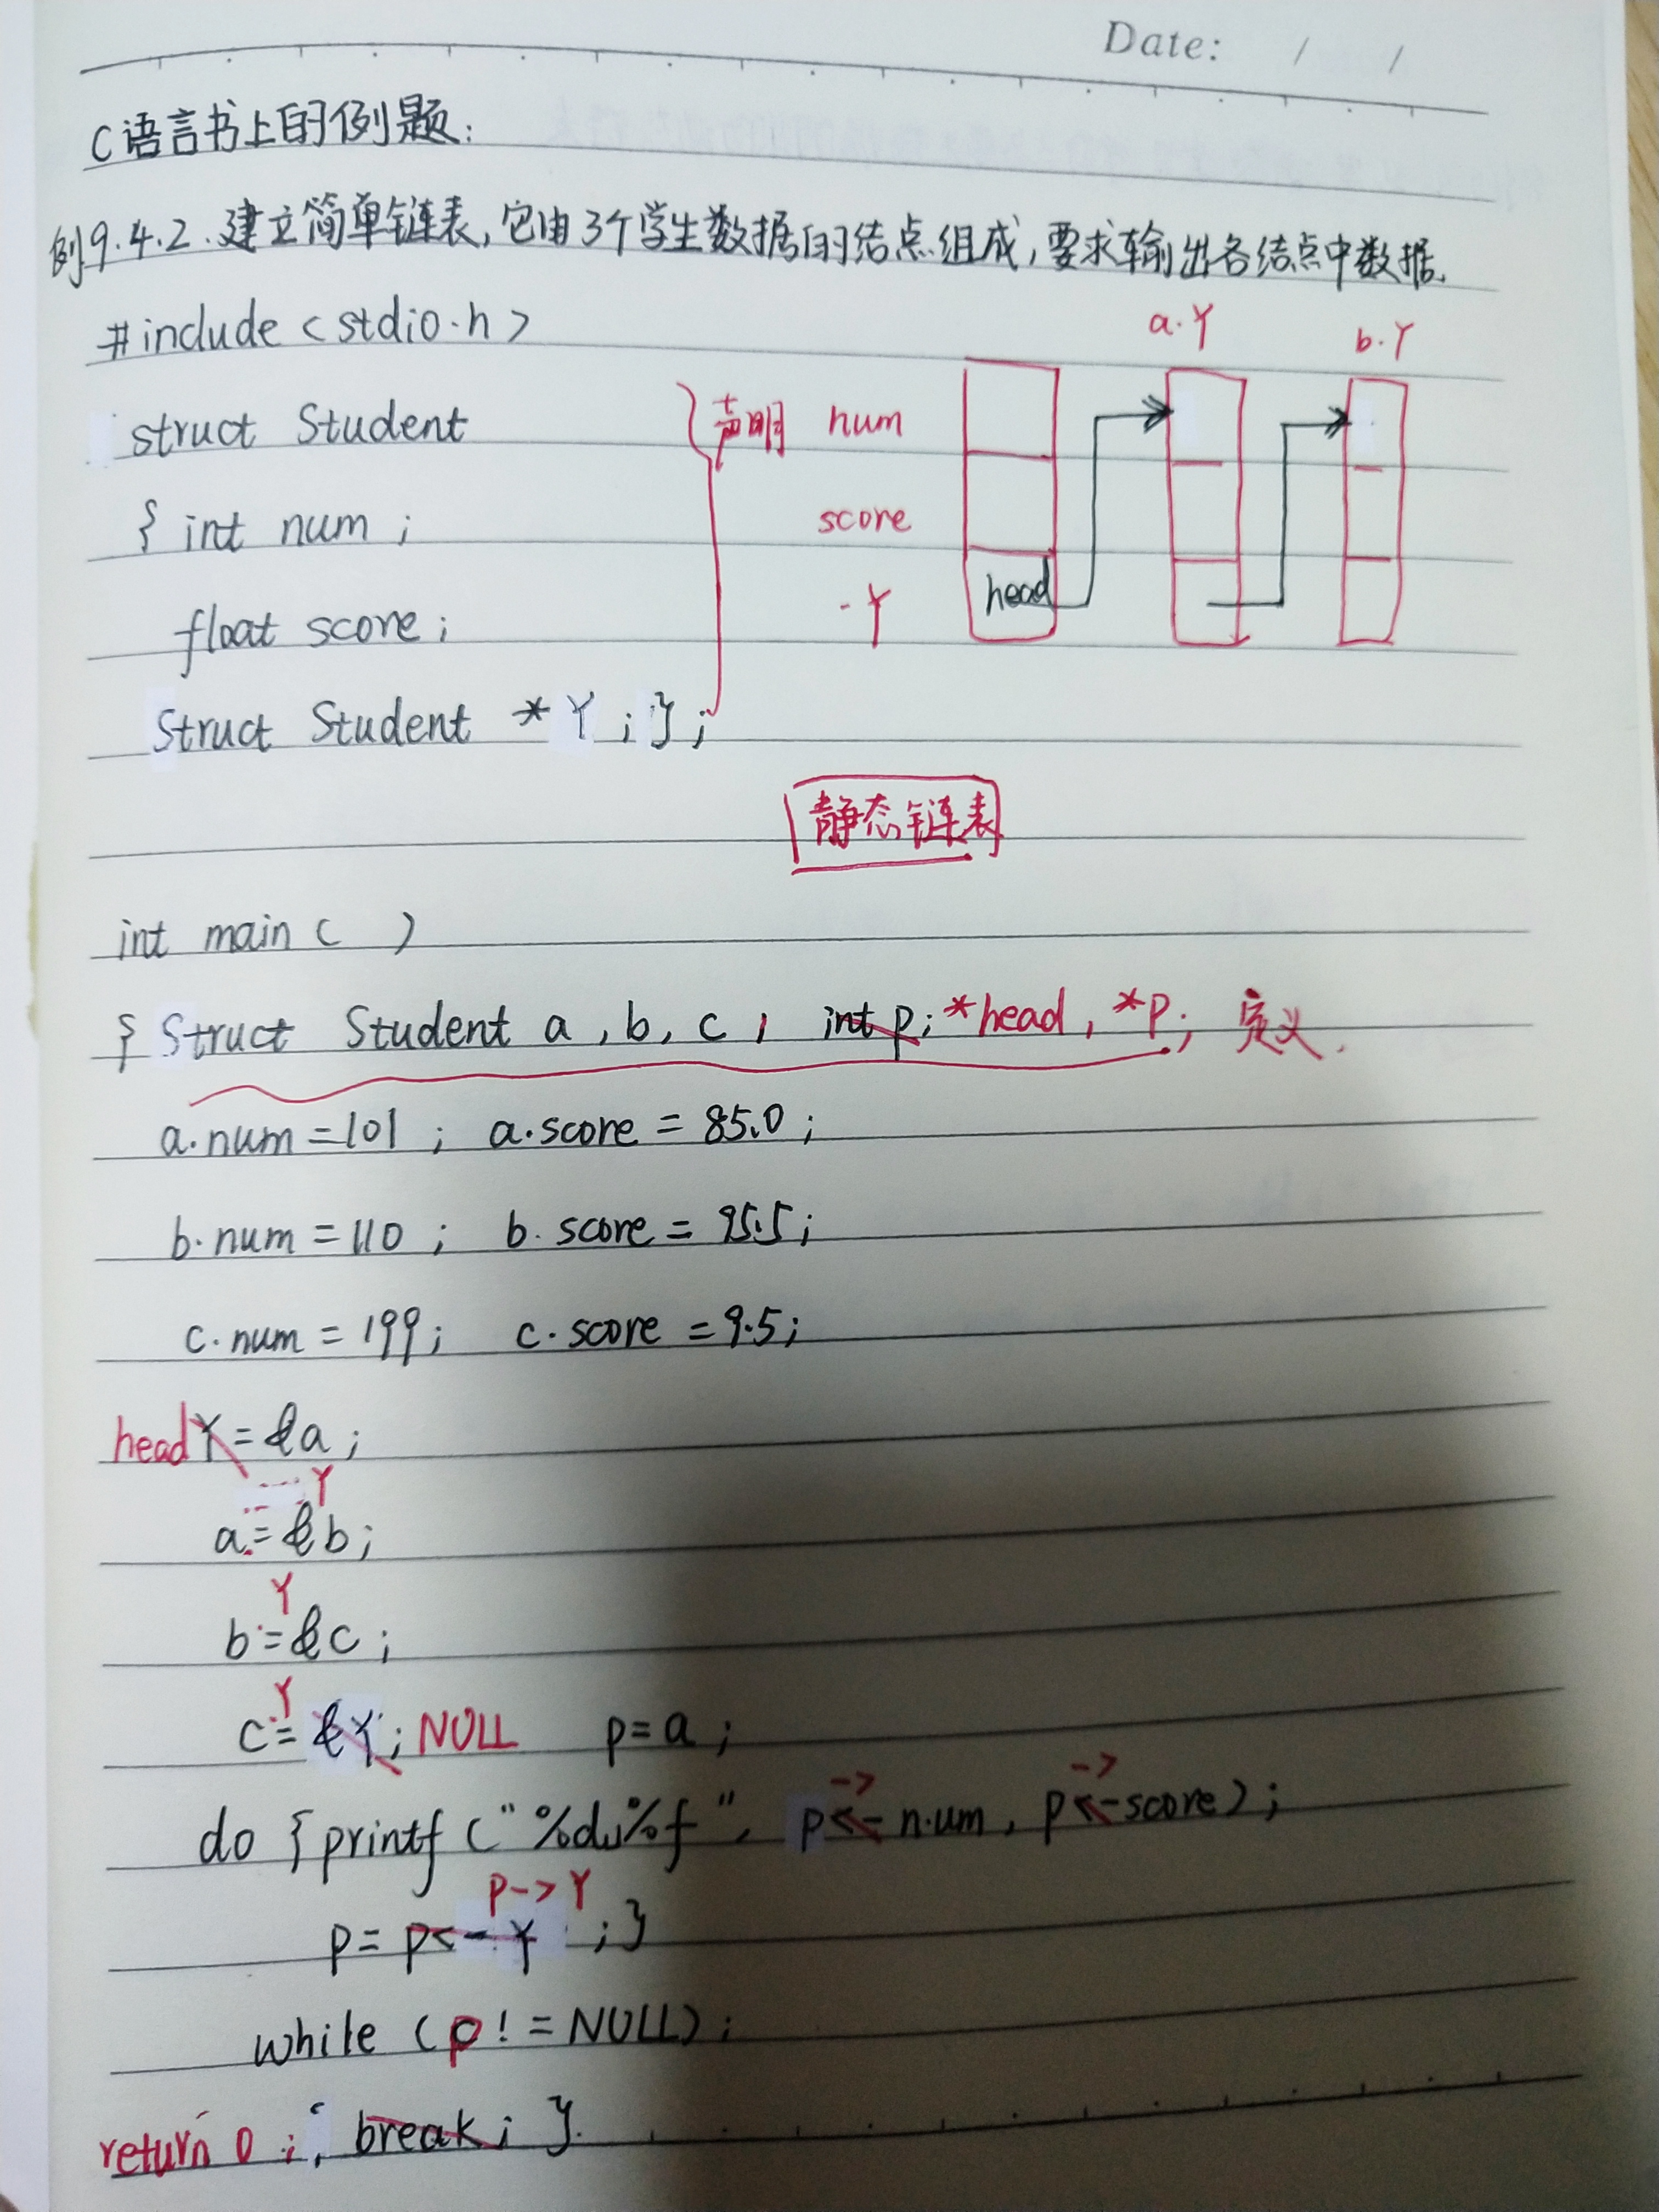 Date: / /
C语言书上的例题:
例9.4.2.建立简单链表,它由3个学生数据的结点组成,要求输出各结点中数据.
#include <stdio.h>
a.Y b.Y
struct Student 声明 num
{ int num ;
score
float score ; .Y head
Struct Student * Y ; } ;
静态链表
int main ( )
{ Struct Student a , b , c ; int p ; *head , *p ; 定义.
a.num = 101 ; a.score = 85.0 ;
b.num = 110 ; b.score = 95.5 ;
c.num = 199 ; c.score = 9.5 ;
head Y = &a ;
Y
a. = &b ;
Y
b. = &c ;
Y
c. = &Y ; NULL p = a ;
-> ->
do { printf ( "%d,%f" , p<-num , p<-score ) ;
p->Y
p = p<-Y ; }
while ( p != NULL ) ;
return 0 ; ; break ; }